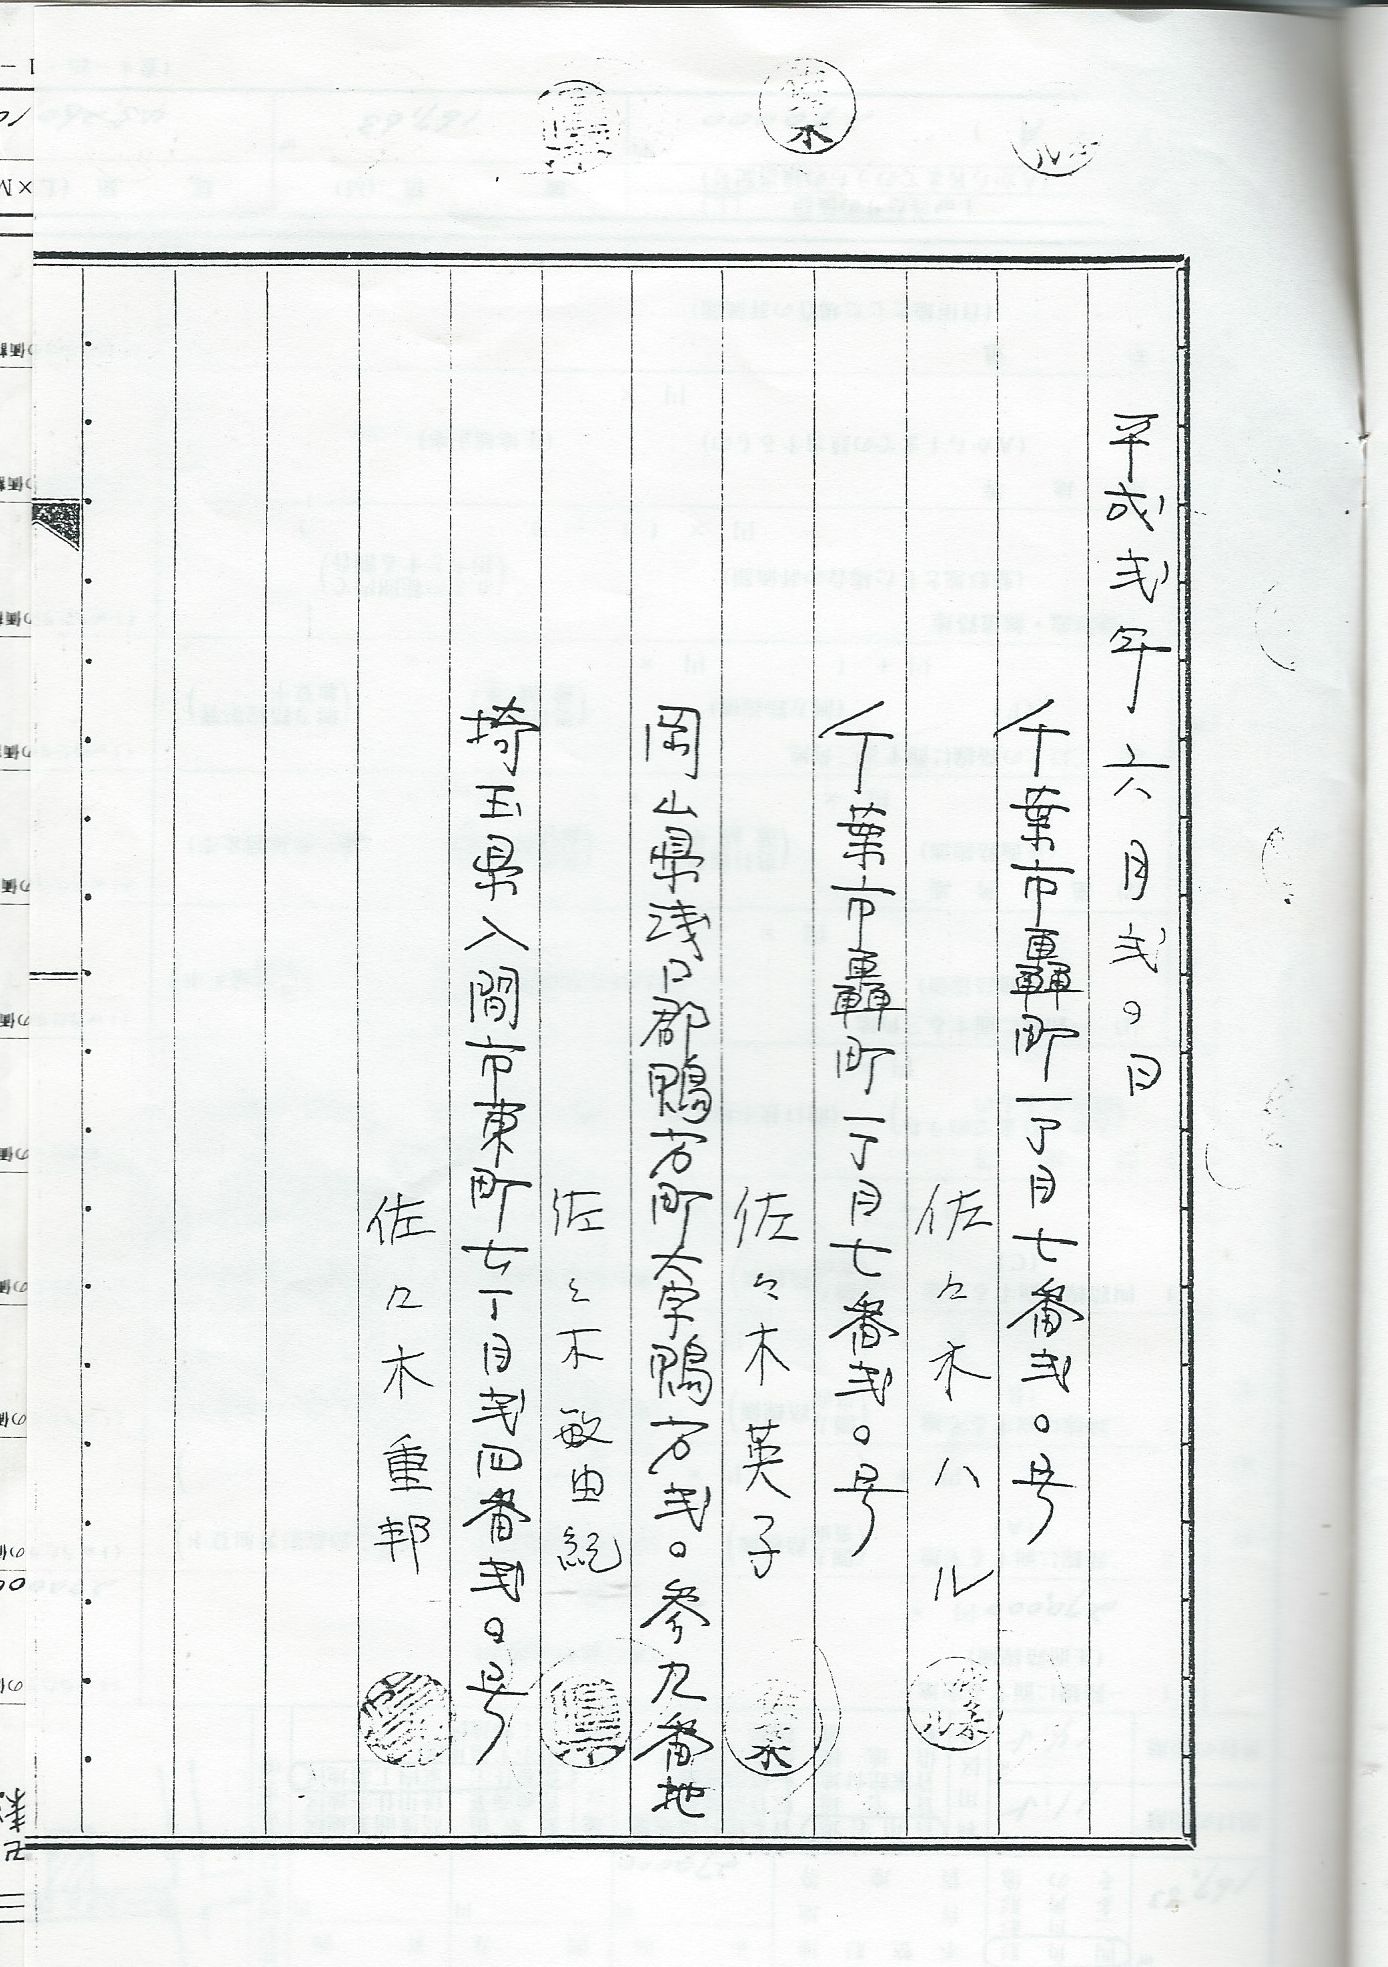 平成弐年六月弐〇日
千葉市轟町一丁目七番弐〇号
佐々木ハル
千葉市轟町一丁目七番弐〇号
佐々木英子
岡山県浅口郡鴨方町大字鴨方弐〇参九番地
佐々木敏由紀
埼玉県入間市東町七丁目弐四番弐〇号
佐々木重邦